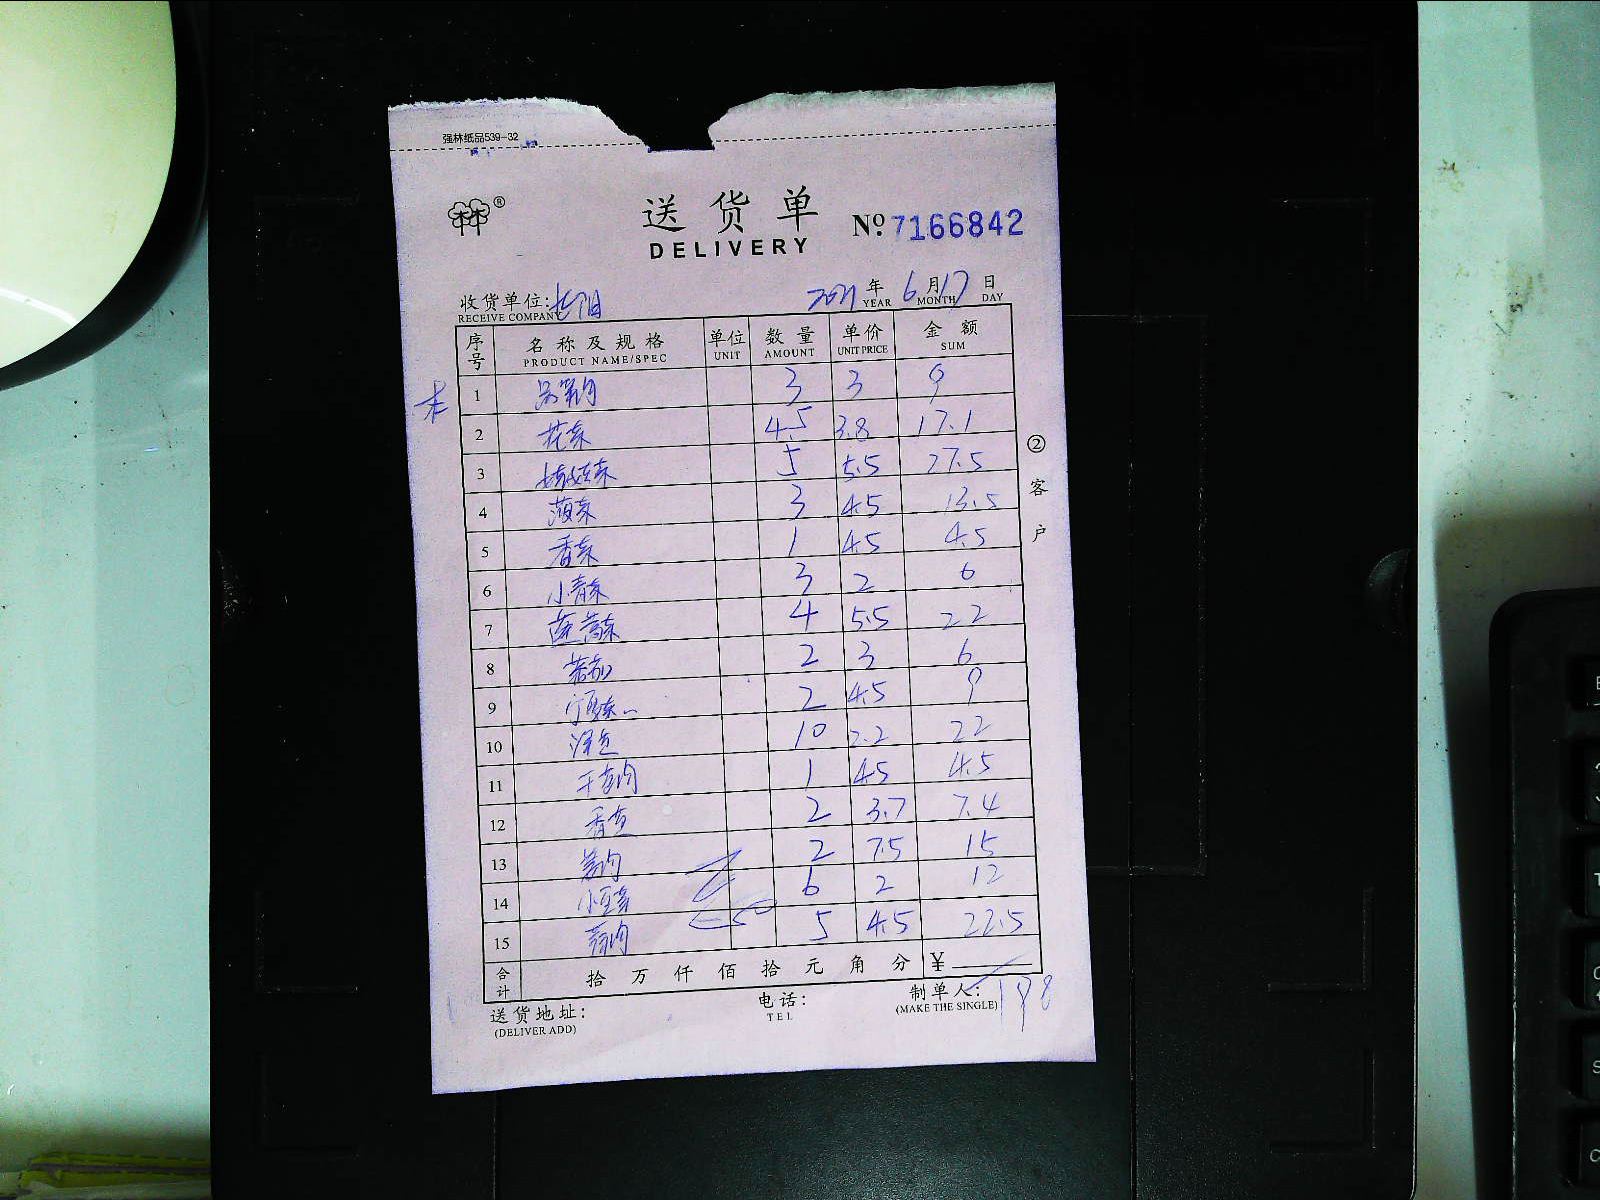 强林纸品539-32
®
送货单
DELIVERY
№ 7166842
收货单位:
RECEIVE COMPANY
2021年6月17日
YEAR MONTH DAY
序号 名称及规格 单位 数量 单价 金额
PRODUCT NAME/SPEC UNIT AMOUNT UNIT PRICE SUM
1 3 3 9
2 花菜 4.5 3.8 17.1
3 娃娃菜 5 5.5 27.5
4 菠菜 3 4.5 13.5
5 香菜 1 4.5 4.5
6 小青菜 3 2 6
7 蓬蒿菜 4 5.5 22
8 2 3 6
9 2 4.5 9
10 10 2.2 22
11 1 4.5 4.5
12 2 3.7 7.4
13 2 7.5 15
14 6 2 12
15 5 4.5 22.5
合计 拾万仟佰拾元角分 ¥
198
②客户
送货地址:
(DELIVER ADD)
电话:
TEL
制单人:
(MAKE THE SINGLE)